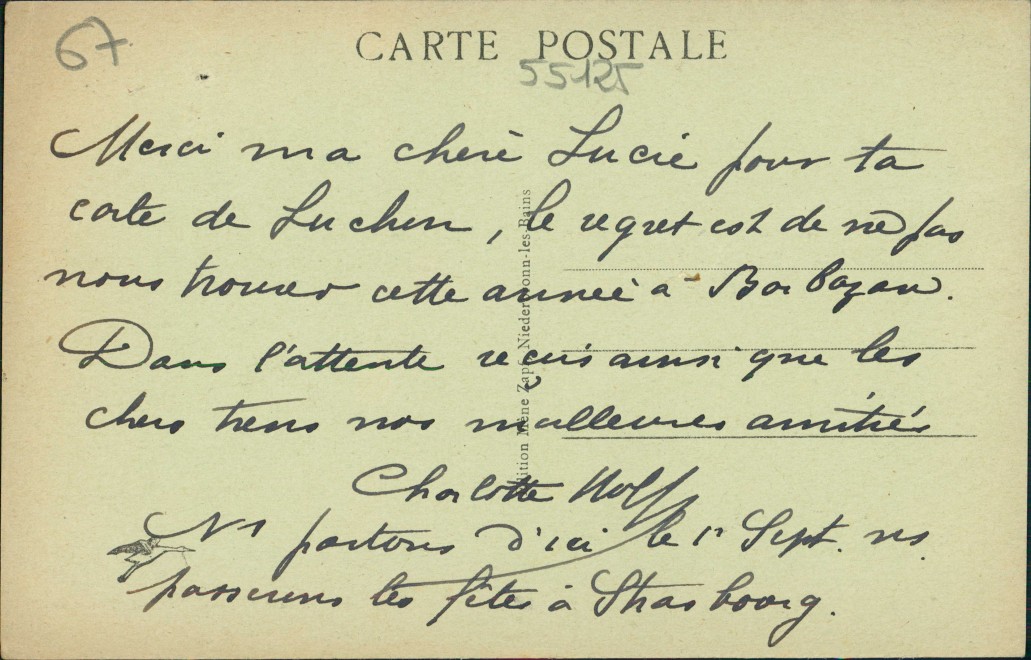 67
CARTE POSTALE
55125
Merci ma chère Lucie pour ta
carte de Luchon, le regret est de ne pas
nous trouver cette année à Barbazan.
Dans l'attente reçois ainsi que les
chers tiens nos meilleures amitiés
Charlotte
Ns partons d'ici le 1r Sept. ns
passerons les fêtes à Strasbourg.
Mène Zapf, Niederbronn-les-Bains